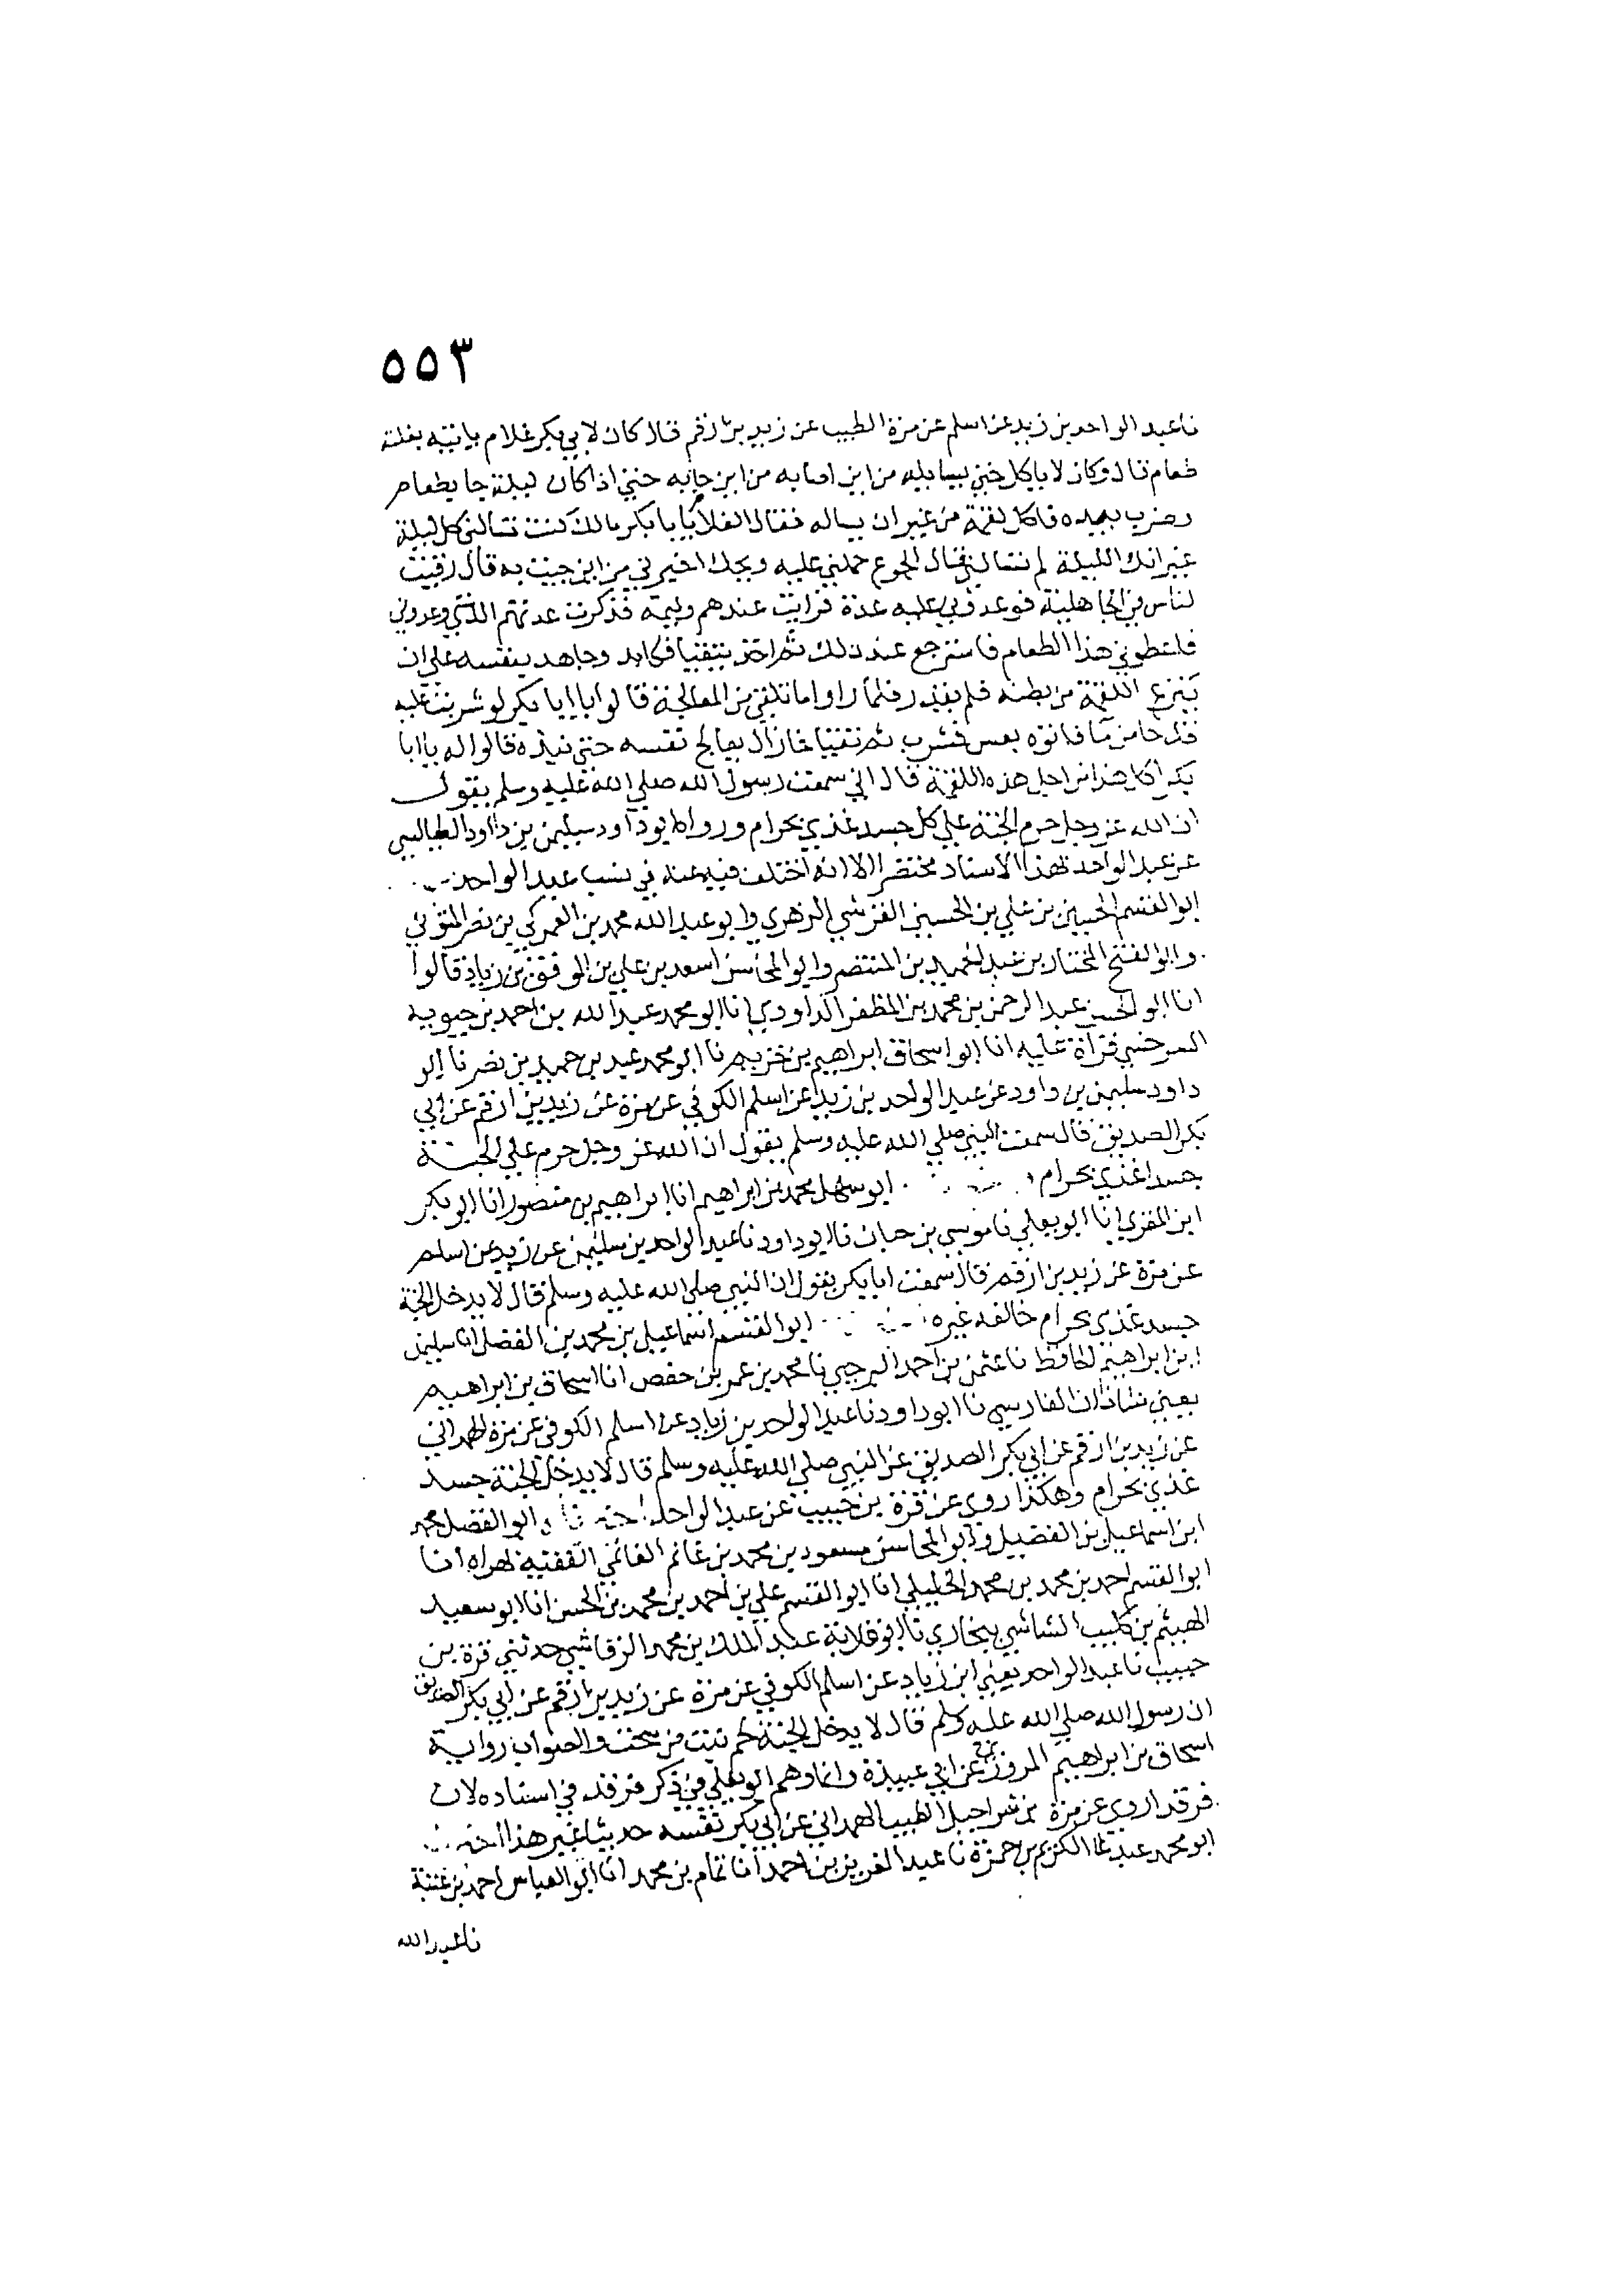 ٥٥٣
نا عبد الواحد بن زيد عن اسلم عن مرة الطبيب عن زيد بن ارقم قال كان لابي بكر غلام ياتيه بغلته
طعام قال وكان لا ياكل حتي يسايله من اين اصابه من اين جا به حتي اذا كان ليلة جا بطعام
فضرب بيده فاكل لقمة من غير ان يساله فقال الغلام يا با بكر مالك كنت تسالني كل ليلة
غير انك الليلة لم تسالني فقال الجوع حملني عليه ويحك اخبرني من اين جيت به قال رقيت
لناس في الجاهلية فوعدوني عليه عدة فرايت عندهم وليمة فذكرت عدتهم الذي وعدوني
فاعطوني هذا الطعام فاسترجع عند ذلك ثم اخذ يتقيا فكابد وجاهد بنفسه علي ان
ينزع اللقمة من بطنه فلم يقدر فلما راوا ما تلقي من المعالجة قالوا يا ابا بكر لو شربت عليه
قدحا من ما فاتوه بعس فشرب ثم تقيا فما زال يعالج نفسه حتي نبذه قالوا له يا ابا
بكر اكل هذا من اجل هذه اللقمة قال اني سمعت رسول الله صلي الله عليه وسلم يقول
ان الله عز وجل حرم الجنة علي كل جسد غذي بحرام ورواه ابو داود سليمن بن داود الطيالسي
عن عبد الواحد بهذا الاسناد مختصرا الا انه اختلف فيه عنه في نسب عبد الواحد
ابو القسم الحسين بن علي بن الحسين القرشي الزهري وابو عبد الله محمد بن العمركي بن نصر المتوثي
وابو الفتح المختار بن عبد الحميد بن المنتصر وابو المحاسن اسعد بن علي بن الموفق بن زياد قالوا
انا ابو الحسن عبد الرحمن بن محمد بن المظفر الداودي انا ابو محمد عبد الله بن احمد بن حيويه
السرخسي قراة عليه انا ابو اسحاق ابراهيم بن خزيم نا ابو محمد عبد بن حميد بن نصر نا ابو
داود سليمن بن داود عن عبد الواحد بن زيد عن اسلم الكوفي عن مرة عن زيد بن ارقم عن ابي
بكر الصديق قال سمعت النبي صلي الله عليه وسلم يقول ان الله عز وجل حرم علي الجنة
جسدا غذي بحرام ابو سهل محمد بن ابراهيم انا ابراهيم بن منصور انا ابو بكر
ابن المقري انا ابو يعلي نا موسي بن حيان نا ابو داود نا عبد الواحد بن سليمن عن زيد عن اسلم
عن مرة عن زيد بن ارقم قال سمعت ابا بكر يقول ان النبي صلي الله عليه وسلم قال لا يدخل الجنة
جسد غذي بحرام خالفه غيره ابو القسم اسماعيل بن محمد بن الفضل انا سليمن
بن ابراهيم الحافظ نا عثمن بن احمد البرجي نا محمد بن عمر بن حفص انا اسحاق بن ابراهيم
يعني شاذان الفارسي نا ابو داود نا عبد الواحد بن زياد عن اسلم الكوفي عن مرة الهمداني
عن زيد بن ارقم عن ابي بكر الصديق عن النبي صلي الله عليه وسلم قال لا يدخل الجنة جسد
غذي بحرام وهكذا روي عن قرة بن حبيب عن عبد الواحد ابو الفضل محمد
ابن اسماعيل بن الفضيل وابو المحاسن مسعود بن محمد بن غانم الغانمي الفقيه بهراه انا
ابو القسم احمد بن محمد بن محمد الخليلي انا ابو القسم علي بن احمد بن محمد بن الحسن انا ابو سعيد
الهيثم بن كليب الشاشي ببخاري نا ابو قلابة عبد الملك بن محمد الرقاشي حدثني قرة بن
حبيب نا عبد الواحد يعني ابن زياد عن اسلم الكوفي عن مرة عن زيد بن ارقم عن ابي بكر الصديق
ان رسول الله صلي الله عليه وسلم قال لا يدخل الجنة لحم نبت من سحت والصواب رواية
اسحاق بن ابراهيم المروزي عن ابي عبيدة وانما وهم ابو يعلي في ذكر فرقد في اسناده لان
فرقدا روي عن مرة بن شراحيل الطبيب الهمداني عن ابي بكر نفسه حديثا غير هذا
ابو محمد عبد الكريم بن حمزة نا عبد العزيز بن احمد انا تمام بن محمد انا ابو العباس احمد بن عتبة
نا عبد الله